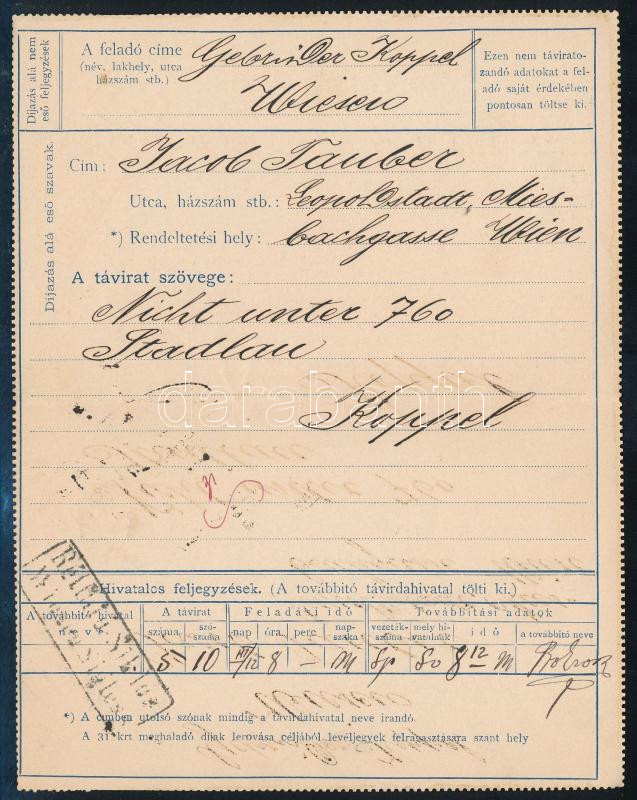 Díjazás alá nem
eső feljegyzések
A feladó címe
(név, lakhely, utca
házszám stb.)
Gebrüder Koppel
Wiesen
Ezen nem távirato-
zandó adatokat a fel-
adó saját érdekében
pontosan töltse ki.
Díjazás alá eső szavak.
Cím: Jacob Tauber
Utca, házszám stb.: Leopoldstadt, Mies-
*) Rendeltetési hely: bachgasse Wien
A távirat szövege:
Nicht unter 760
Stadlau
Koppel
darabanth
Hivatalos feljegyzések. (A továbbító távirdahivatal tölti ki.)
A továbbító hivatal
neve
A távirat
száma
szó-
száma
Feladási idő
nap
óra
perc
nap-
szaka
Továbbítási adatok
vezeték-
száma
mely hi-
vatalnak
idő
a továbbító neve
5 10 8 – M 8 12 M
*) A címben utolsó szónak mindig a távirdahivatal neve irandó.
A 31 krt meghaladó díjak lerovása céljából levéljegyek felragasztására szant hely